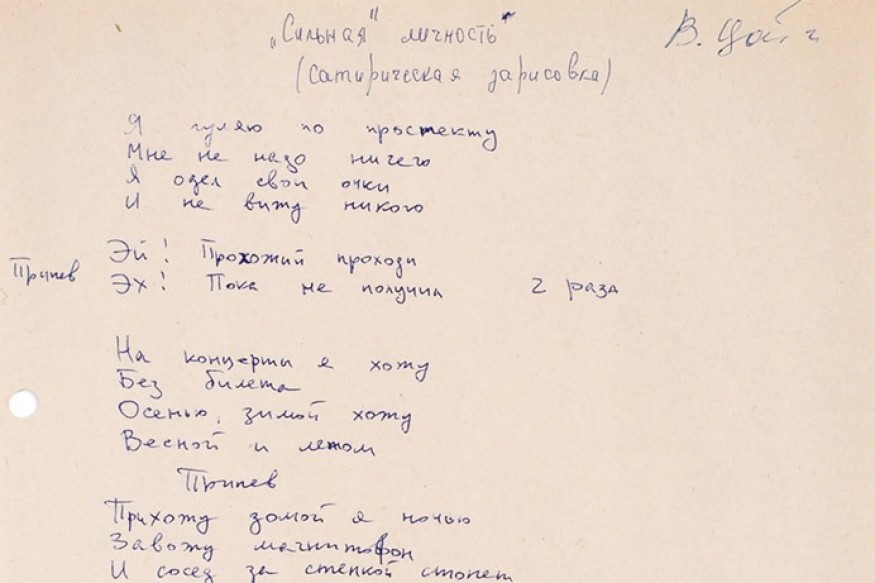 „Сильная" личность"
В. Цой
(сатирическая зарисовка)
Я гуляю по простекту
Мне не надо ничего
Я одел свои очки
И не вижу никого
Припев
Эй! Прохожий проходи
Эх! Пока не получил
2 раза
На концерты я хожу
Без билета
Осенью, зимой хожу
Весной и летом
Припев
Прихожу домой я ночью
Завожу магнитофон
И сосед за стенкой стонет